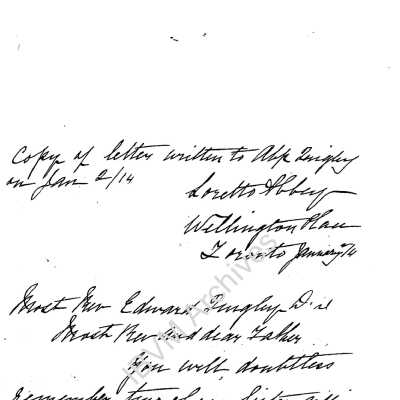 Copy of letter written to Abp Quigley
on Jan 2/14
Loretto Abbey
Wellington Place
Toronto January /14
Most Rev Edward Quigley D.D
Most Rev and dear Father
You will doubtless
remember
IBVM Archives